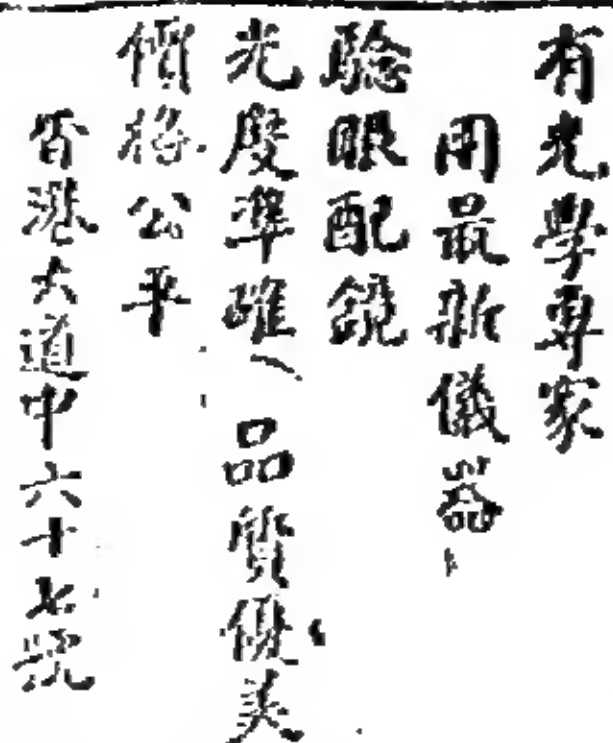 有光學專家
用最新儀器
驗眼配鏡
光度準確、品質優美
價格公平
香港大道中六十七號